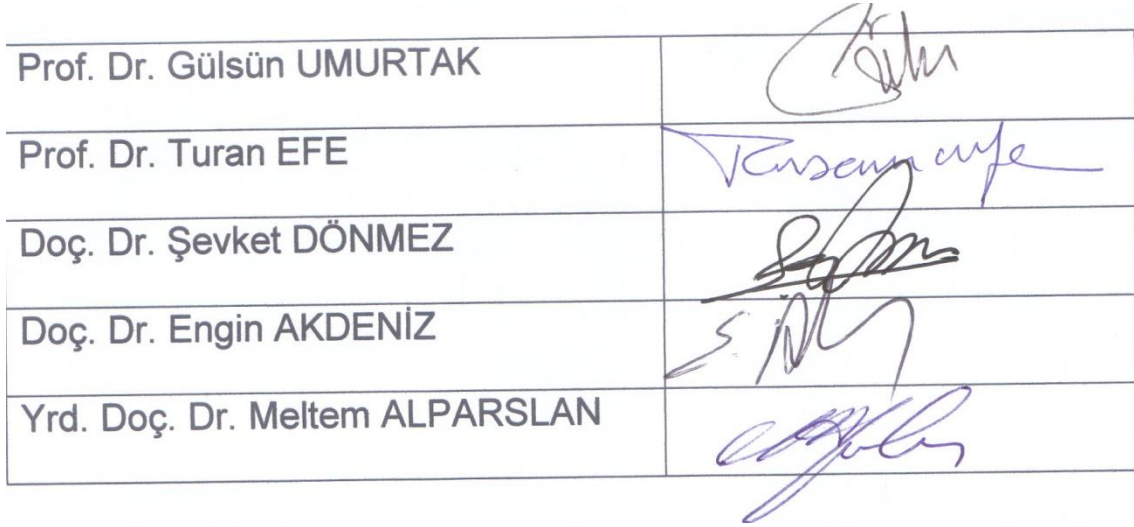 Prof. Dr. Gülsün UMURTAK
Prof. Dr. Turan EFE
Doç. Dr. Şevket DÖNMEZ
Doç. Dr. Engin AKDENİZ
Yrd. Doç. Dr. Meltem ALPARSLAN